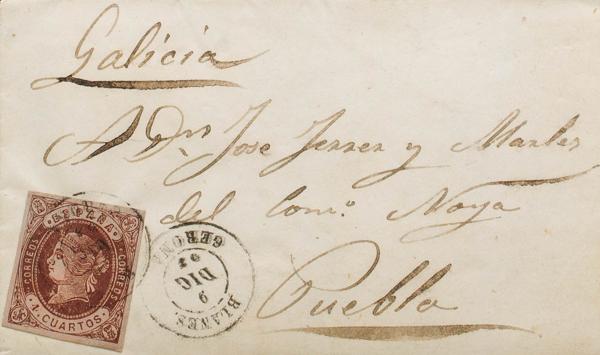 Galicia
A Dn Jose Ferrer y Marles
del Com.o Noya
Puebla
ESPAÑA
CORREOS CORREOS
4 CUARTOS
BLANES.
9
DIC
GERONA